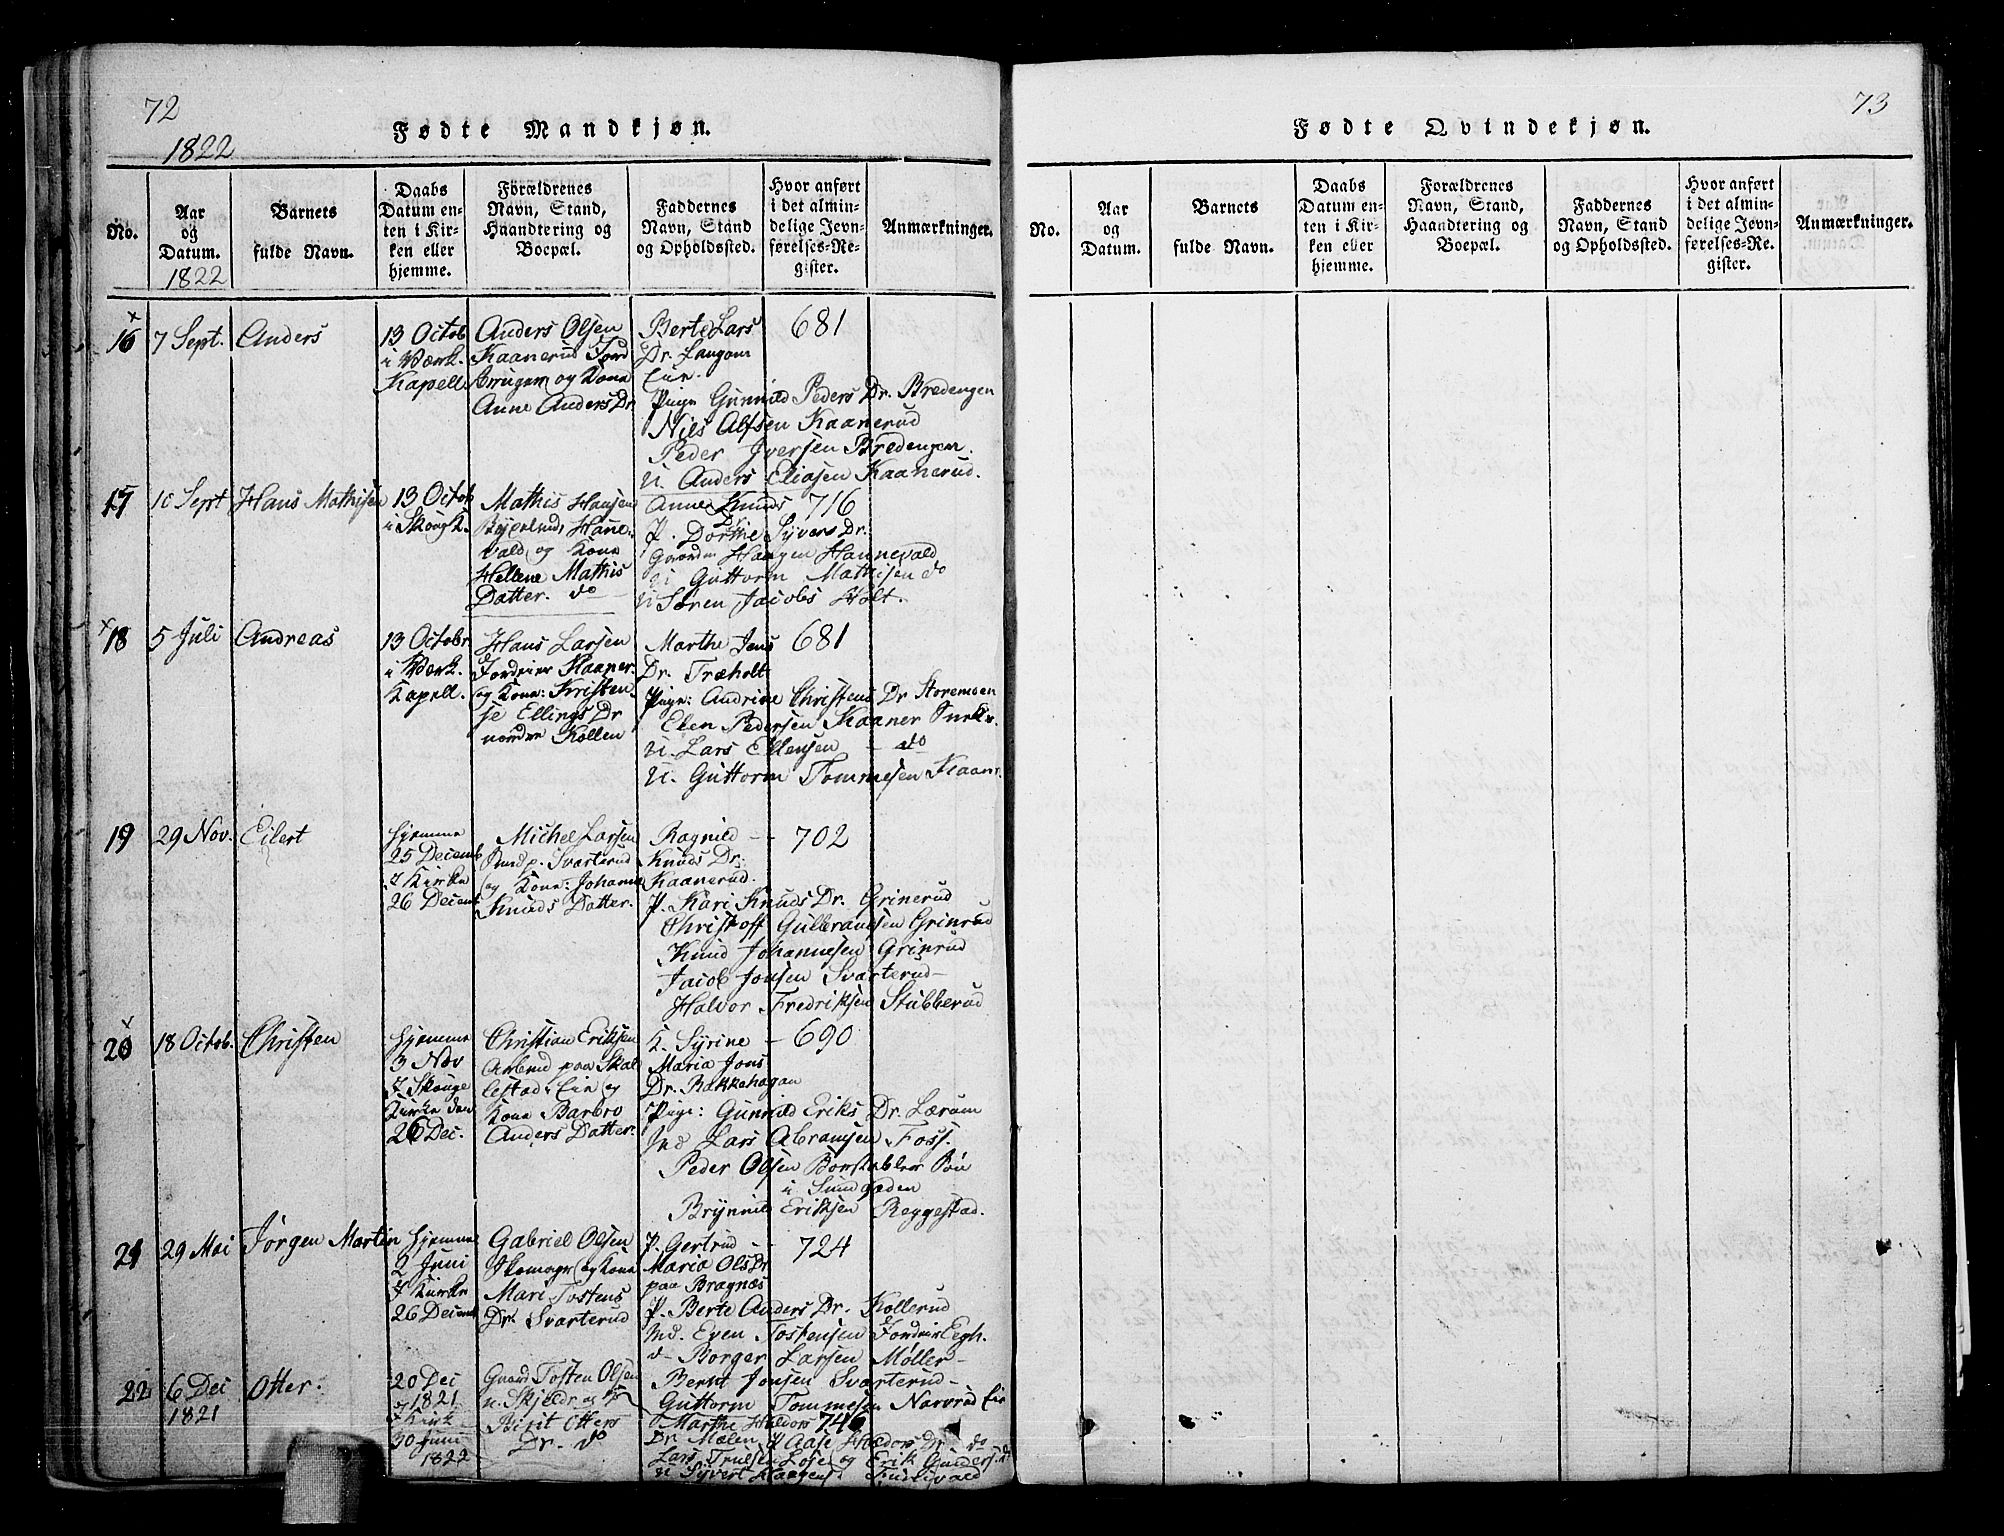 72
1822
Fødte Mandkjøn.
No.
Aar
og
Datum.
1822
Barnets
fulde Navn.
Daabs
Datum en-
ten i Kir-
ken eller
hjemme.
Forældrenes
Navn, Stand,
Haandtering og
Boepæl.
Faddernes
Navn, Stand
og Opholdssted.
Hvor anført
i det almin-
delige Jevn-
førelses-Re-
gister.
Anmærkninger.
16
7 Sept.
Anders
13 Octob
i Værk.
Kapell
Anders Olsen
Kaanerud Jord
bruger og Kone
Anne Anders Dr
Berte Lars
Dr. Langom
Eie.
Pige Gunnild Peders Dr. Bredengen
Nils Alfsen Kaanerud
Peder Iversen Bredengen.
U. Anders Eliasen Kaanerud.
681
17
10 Sept
Hans Mathisen
13 Octob
i Skoug K.
Mathis Hansen
Hanne-
vald og Kone
Hellene Mathis
Datter. do
Anne Knuds
P. Dorthe Syvers Dr.
Haagen Hannevald
U Guttorm Mathisen do
U Søren Jacobs Holt.
716
18
5 Juli
Andreas
13 Octobr
i Værk.
Kapell.
Hans Larsen
Kaaner.
og Kone: Kristen-
se Ellings Dr
nordre Kollen
Marthe Jens
Dr. Træholt
Pige: Andrine Christens Dr Storemoen
Elen Pedersen Kaaner
U. Lars Ellensen - do
U. Guttorm Tommesen Kaane
681
19
29 Nov.
Eilert
Hjemme
25 Decemb
i Kirke
26 Decemb
Michel Larsen
Svarterud
og Kone: Johanne
Knuds Datter.
Ragnild
Knuds Dr.
Kaanerud.
P. Kari Knuds Dr. Grinerud
Christoff Gulbransen Grinrud
Knud Johannesen Grinrud
Jacob Jonsen Svarterud
Halvor Fredriksen Stubberud
702
20
18 Octob.
Christen
Hjemme
3 Nov
i Skouge
Kirke den
26 Dec.
Christian Eriksen
paa Skal
lestad Eie og
Kone Barbro
Anders Datter.
K. Syrine
Maria Jons
Dr. Bakkehagan
Pige: Gunnild Eriks Dr. Lærum
Lars Abramsen Foss.
Peder Olsen
i
Brynnild Eriksen Reggestad.
690
21
29 Mai
Jørgen Martin
Hjemme
2 Juni
i Kirke
26 Decemb
Gabriel Olsen
Skomager og Kone
Mari Tostens
Dr. Svarterud
P. Gertrud
Maria Ols Dr
paa Bragnæs
P. Berte Anders Dr. Kollerud
Even Tostensen
Borger Larsen Møller
Bernt Jonsen Svarterud
Guttorm Tommesen Narvrud Eie
724
22
6 Dec
1821
Otter.
20 Dec
1821
i Kirk
30 Juni
1822
Tosten Olsen
Birit Otters
Dr. do
Marthe Haldors
Dr. Mælen P Aase Haldors Dr do
Lars Truelsen og Erik Gunders. do
U Syvert Haagens
746
73
Fødte Qvindekjøn.
No.
Aar
og
Datum.
Barnets
fulde Navn.
Daabs
Datum en-
ten i Kir-
ken eller
hjemme.
Forældrenes
Navn, Stand,
Haandtering og
Boepæl.
Faddernes
Navn, Stand
og Opholdssted.
Hvor anført
i det almin-
delige Jevn-
førelses-Re-
gister.
Anmærkninger.